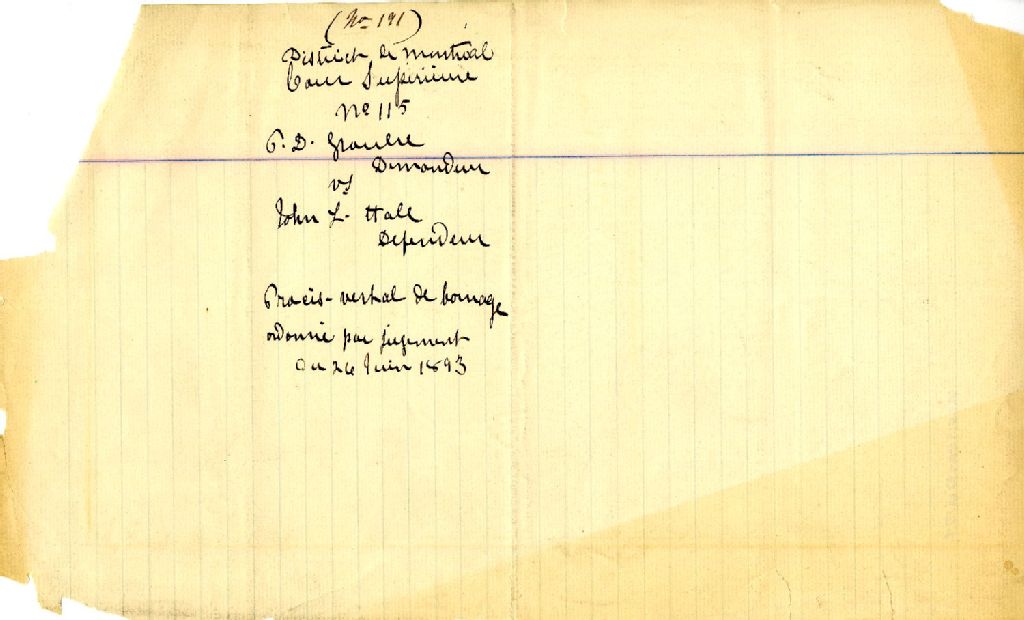 (No 191)
District de Montréal
Cour Supérieure
No 115
P. D.
Demandeur
vs
John L. Hall
Défendeur
Procès-verbal de bornage
ordonné par jugement
du 26 Juin 1893